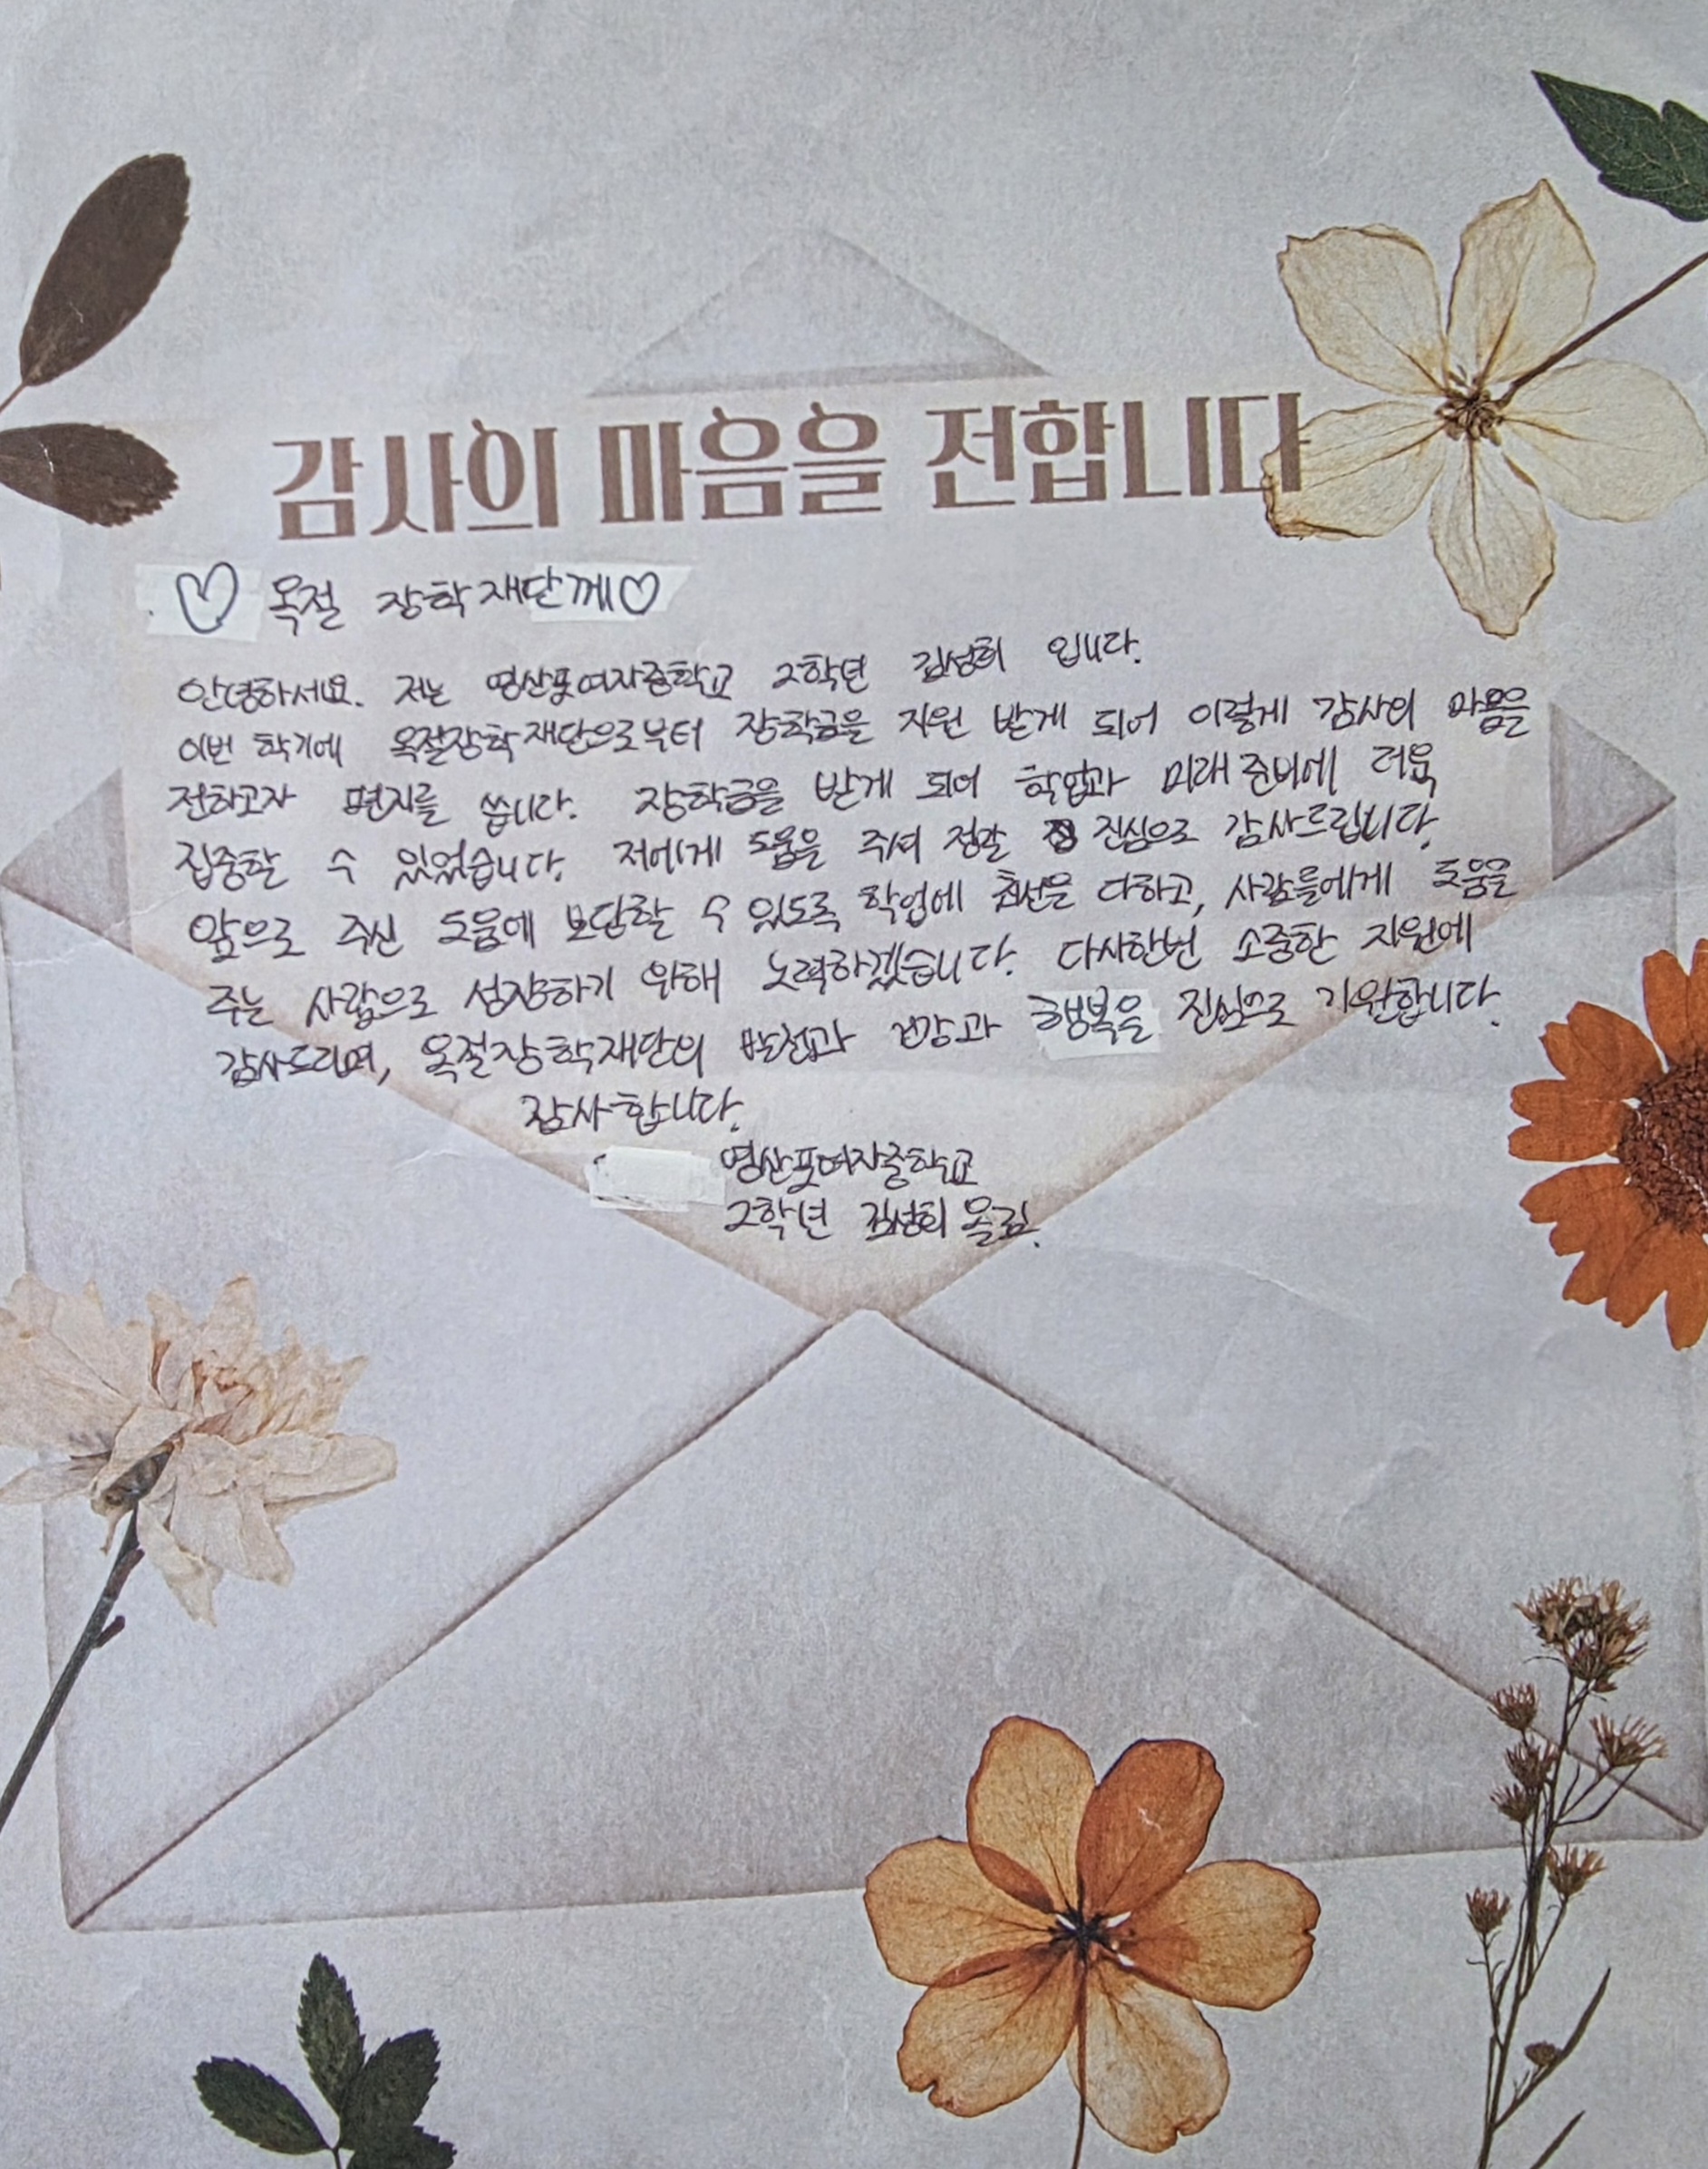 감사의 마음을 전합니다
♡ 옥절 장학재단께♡
안녕하세요. 저는 영산포여자중학교 2학년 김성희 입니다.
이번 학기에 옥절장학재단으로부터 장학금을 지원 받게 되어 이렇게 감사의 마음을
전하고자 편지를 씁니다. 장학금을 받게 되어 학업과 미래 준비에 더욱
집중할 수 있었습니다. 저에게 도움을 주셔 정말 진심으로 감사드립니다.
앞으로 주신 도움에 보답할 수 있도록 학업에 최선을 다하고, 사람들에게 도움을
주는 사람으로 성장하기 위해 노력하겠습니다. 다시한번 소중한 지원에
감사드리며, 옥절장학재단의 발전과 건강과 행복을 진심으로 기원합니다.
감사합니다.
영산포여자중학교
2학년 김성희 올림.